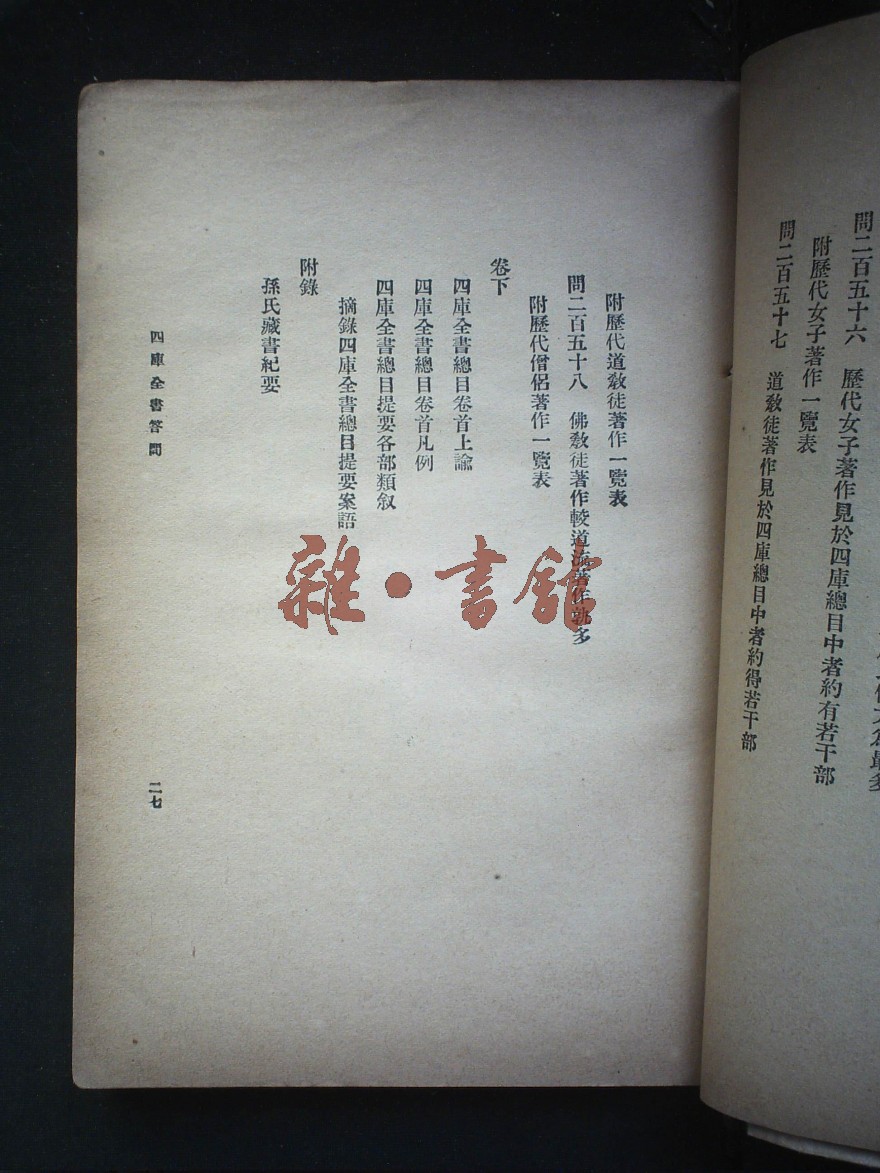 問二百五十六　歷代女子著作見於四庫總目中者約有若干部
附歷代女子著作一覽表
問二百五十七　道敎徒著作見於四庫總目中者約得若干部
附歷代道敎徒著作一覽表
問二百五十八　佛敎徒著作較道流著作孰多
附歷代僧侶著作一覽表
卷下
四庫全書總目卷首上諭
四庫全書總目卷首凡例
四庫全書總目提要各部類敘
摘錄四庫全書總目提要案語
附錄
孫氏藏書紀要
四庫全書答問
二七
雜·書館